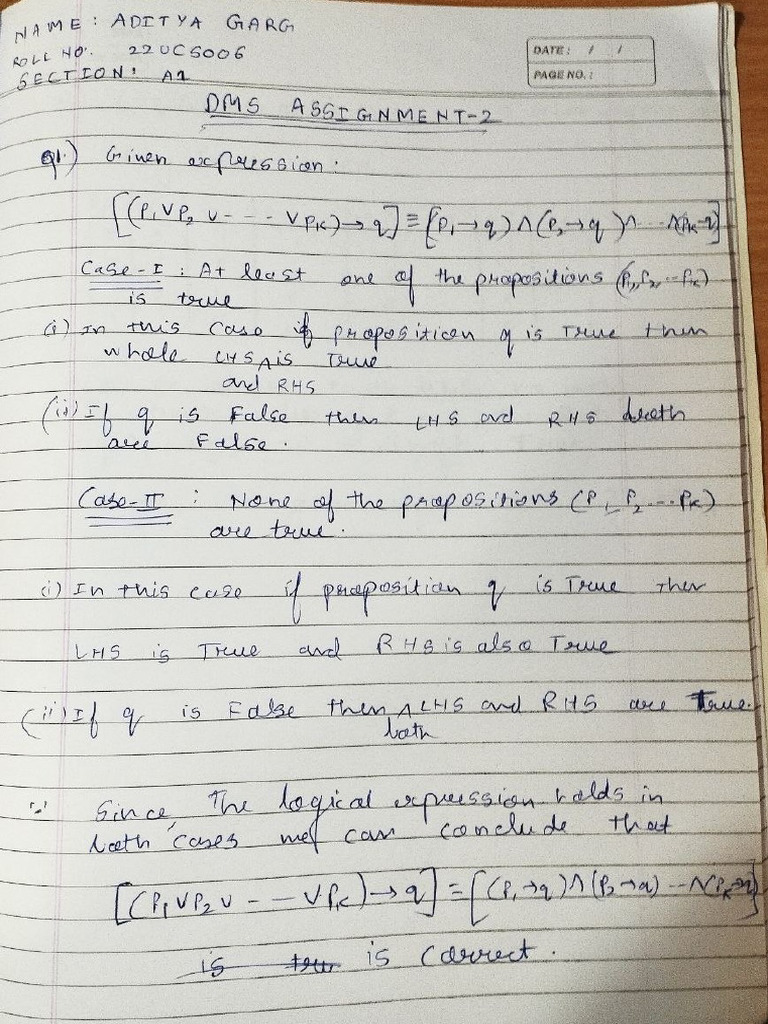 NAME: ADITYA GARG
ROLL NO. 22UCS006
SECTION: A1
DATE: / /
PAGE NO.:
DMS ASSIGNMENT-2
Q1.) Given expression:
[(P₁∨P₂ ∨ - - - ∨ Pₖ) → q] ≡ [(P₁→q) ∧ (P₂→q) ∧ ... ∧(Pₖ→q)]
Case-I : At least one of the propositions (P₁,P₂,...Pₖ)
is true
(i) In this case if proposition q is True then
whole LHS ∧ is True
and RHS
(ii) If q is False then LHS and RHS both
are False.
Case-II : None of the propositions (P₁, P₂ ... Pₖ)
are true.
(i) In this case if proposition q is True then
LHS is True and RHS is also True
(ii) If q is False then ∧ LHS and RHS are True.
both
∵ Since, The logical expression holds in
both cases we can conclude that
[(P₁∨P₂∨ - - - ∨ Pₖ) → q] = [(P₁→q) ∧ (P₂→q) -- ∧(Pₖ→q)]
is true is Correct.